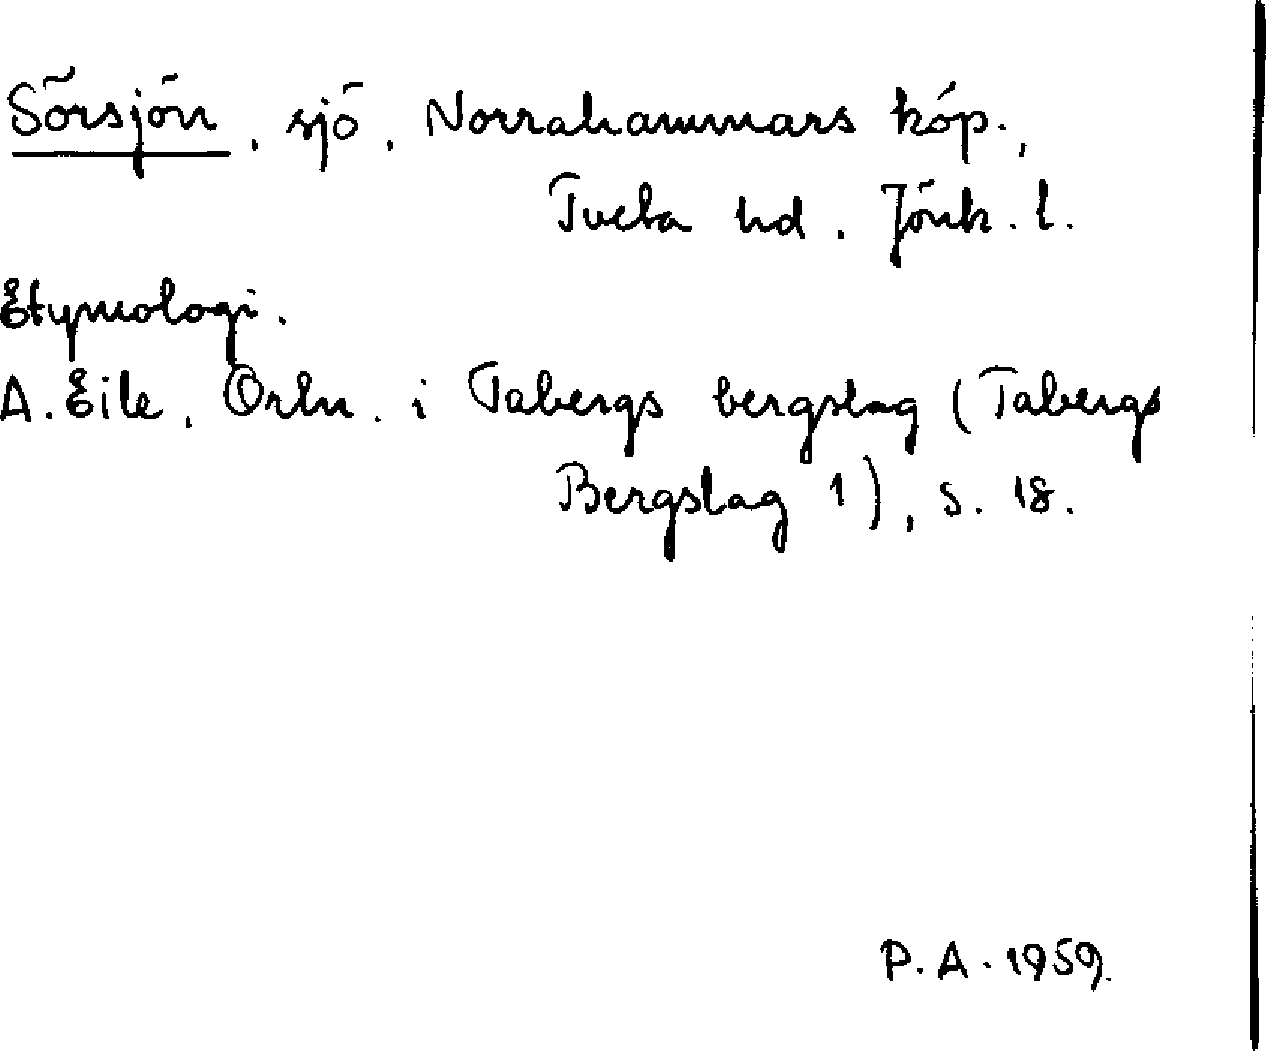 Sörsjön, sjö, Norrahammars köp.,
Tveta hd, Jönk. l.
Etymologi.
A. Eile, Ortn. i Tabergs bergslag (Tabergs
Bergslag 1), s. 18.
P. A. 1959.